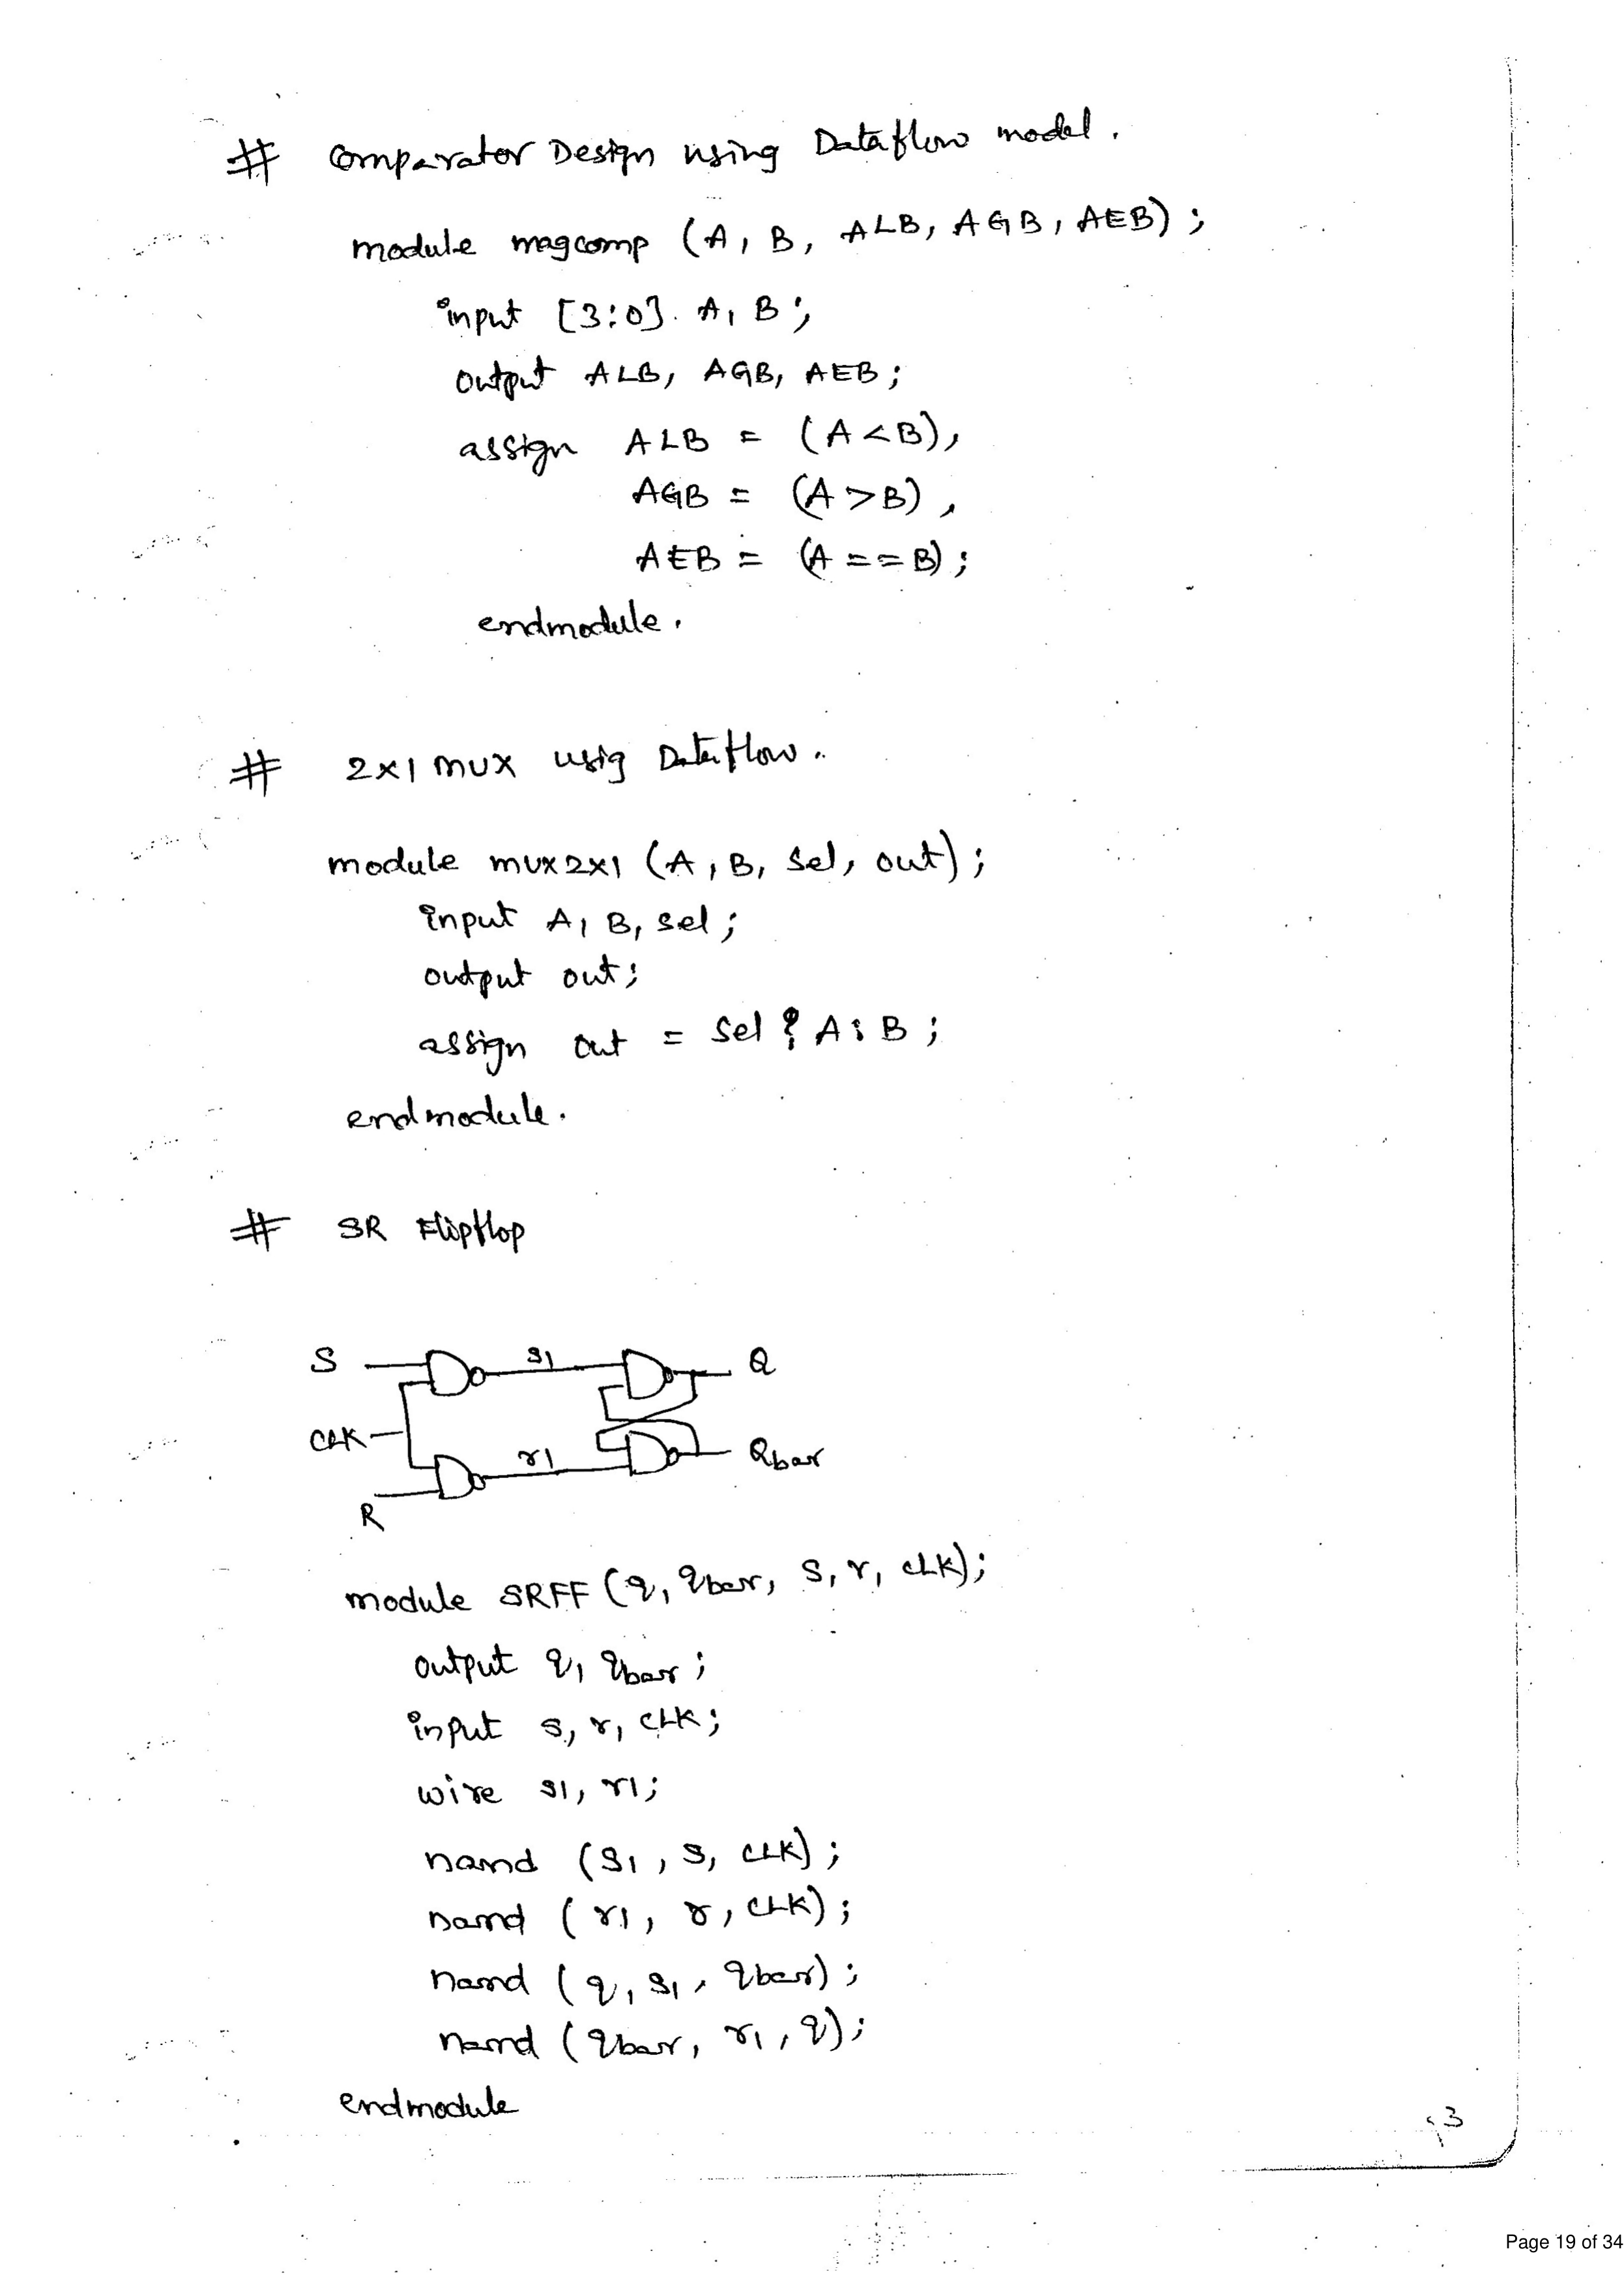 # Comparator Design using Dataflow model.
module magcomp (A, B, ALB, AGB, AEB);
input [3:0] A, B;
output ALB, AGB, AEB;
assign ALB = (A<B),
AGB = (A>B),
AEB = (A==B);
endmodule.
# 2x1 MUX usig Dataflow.
module mux2x1 (A, B, sel, out);
input A, B, sel;
output out;
assign out = sel ? A : B;
endmodule.
# SR Flipflop
S s1 Q
CLK
r1 Qbar
R
module SRFF (q, qbar, s, r, CLK);
output q, qbar;
input s, r, CLK;
wire s1, r1;
nand (s1, s, CLK);
nand (r1, r, CLK);
nand (q, s1, qbar);
nand (qbar, r1, q);
endmodule
Page 19 of 34